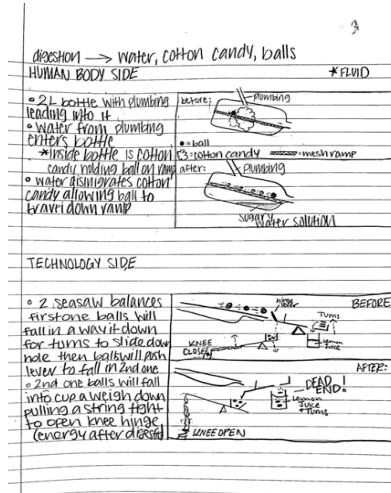 digestion → water, cotton candy, balls
HUMAN BODY SIDE
*FLUID
• 2L bottle with plumbing
leading into it
• water from plumbing
enters bottle
*inside bottle is cotton
candy holding ball on ramp
• water disinigrates cotton
candy allowing ball to
travel down ramp
before:
plumbing
= ball
= cotton candy
= mesh ramp
after:
plumbing
sugary water solution
TECHNOLOGY SIDE
• 2 seasaw balances
first one balls will
fall in a way it down
for tums to slide down
hole then balls will push
lever to fall in 2nd one
• 2nd one balls will fall
into cup a weigh down
pulling a string tight
to open knee hinge
(energy after digested)
BEFORE
Tums
lemon
juice
KNEE
CLOSED
AFTER:
DEAD
END!
Lemon
Juice
+ Tums
KNEE OPEN